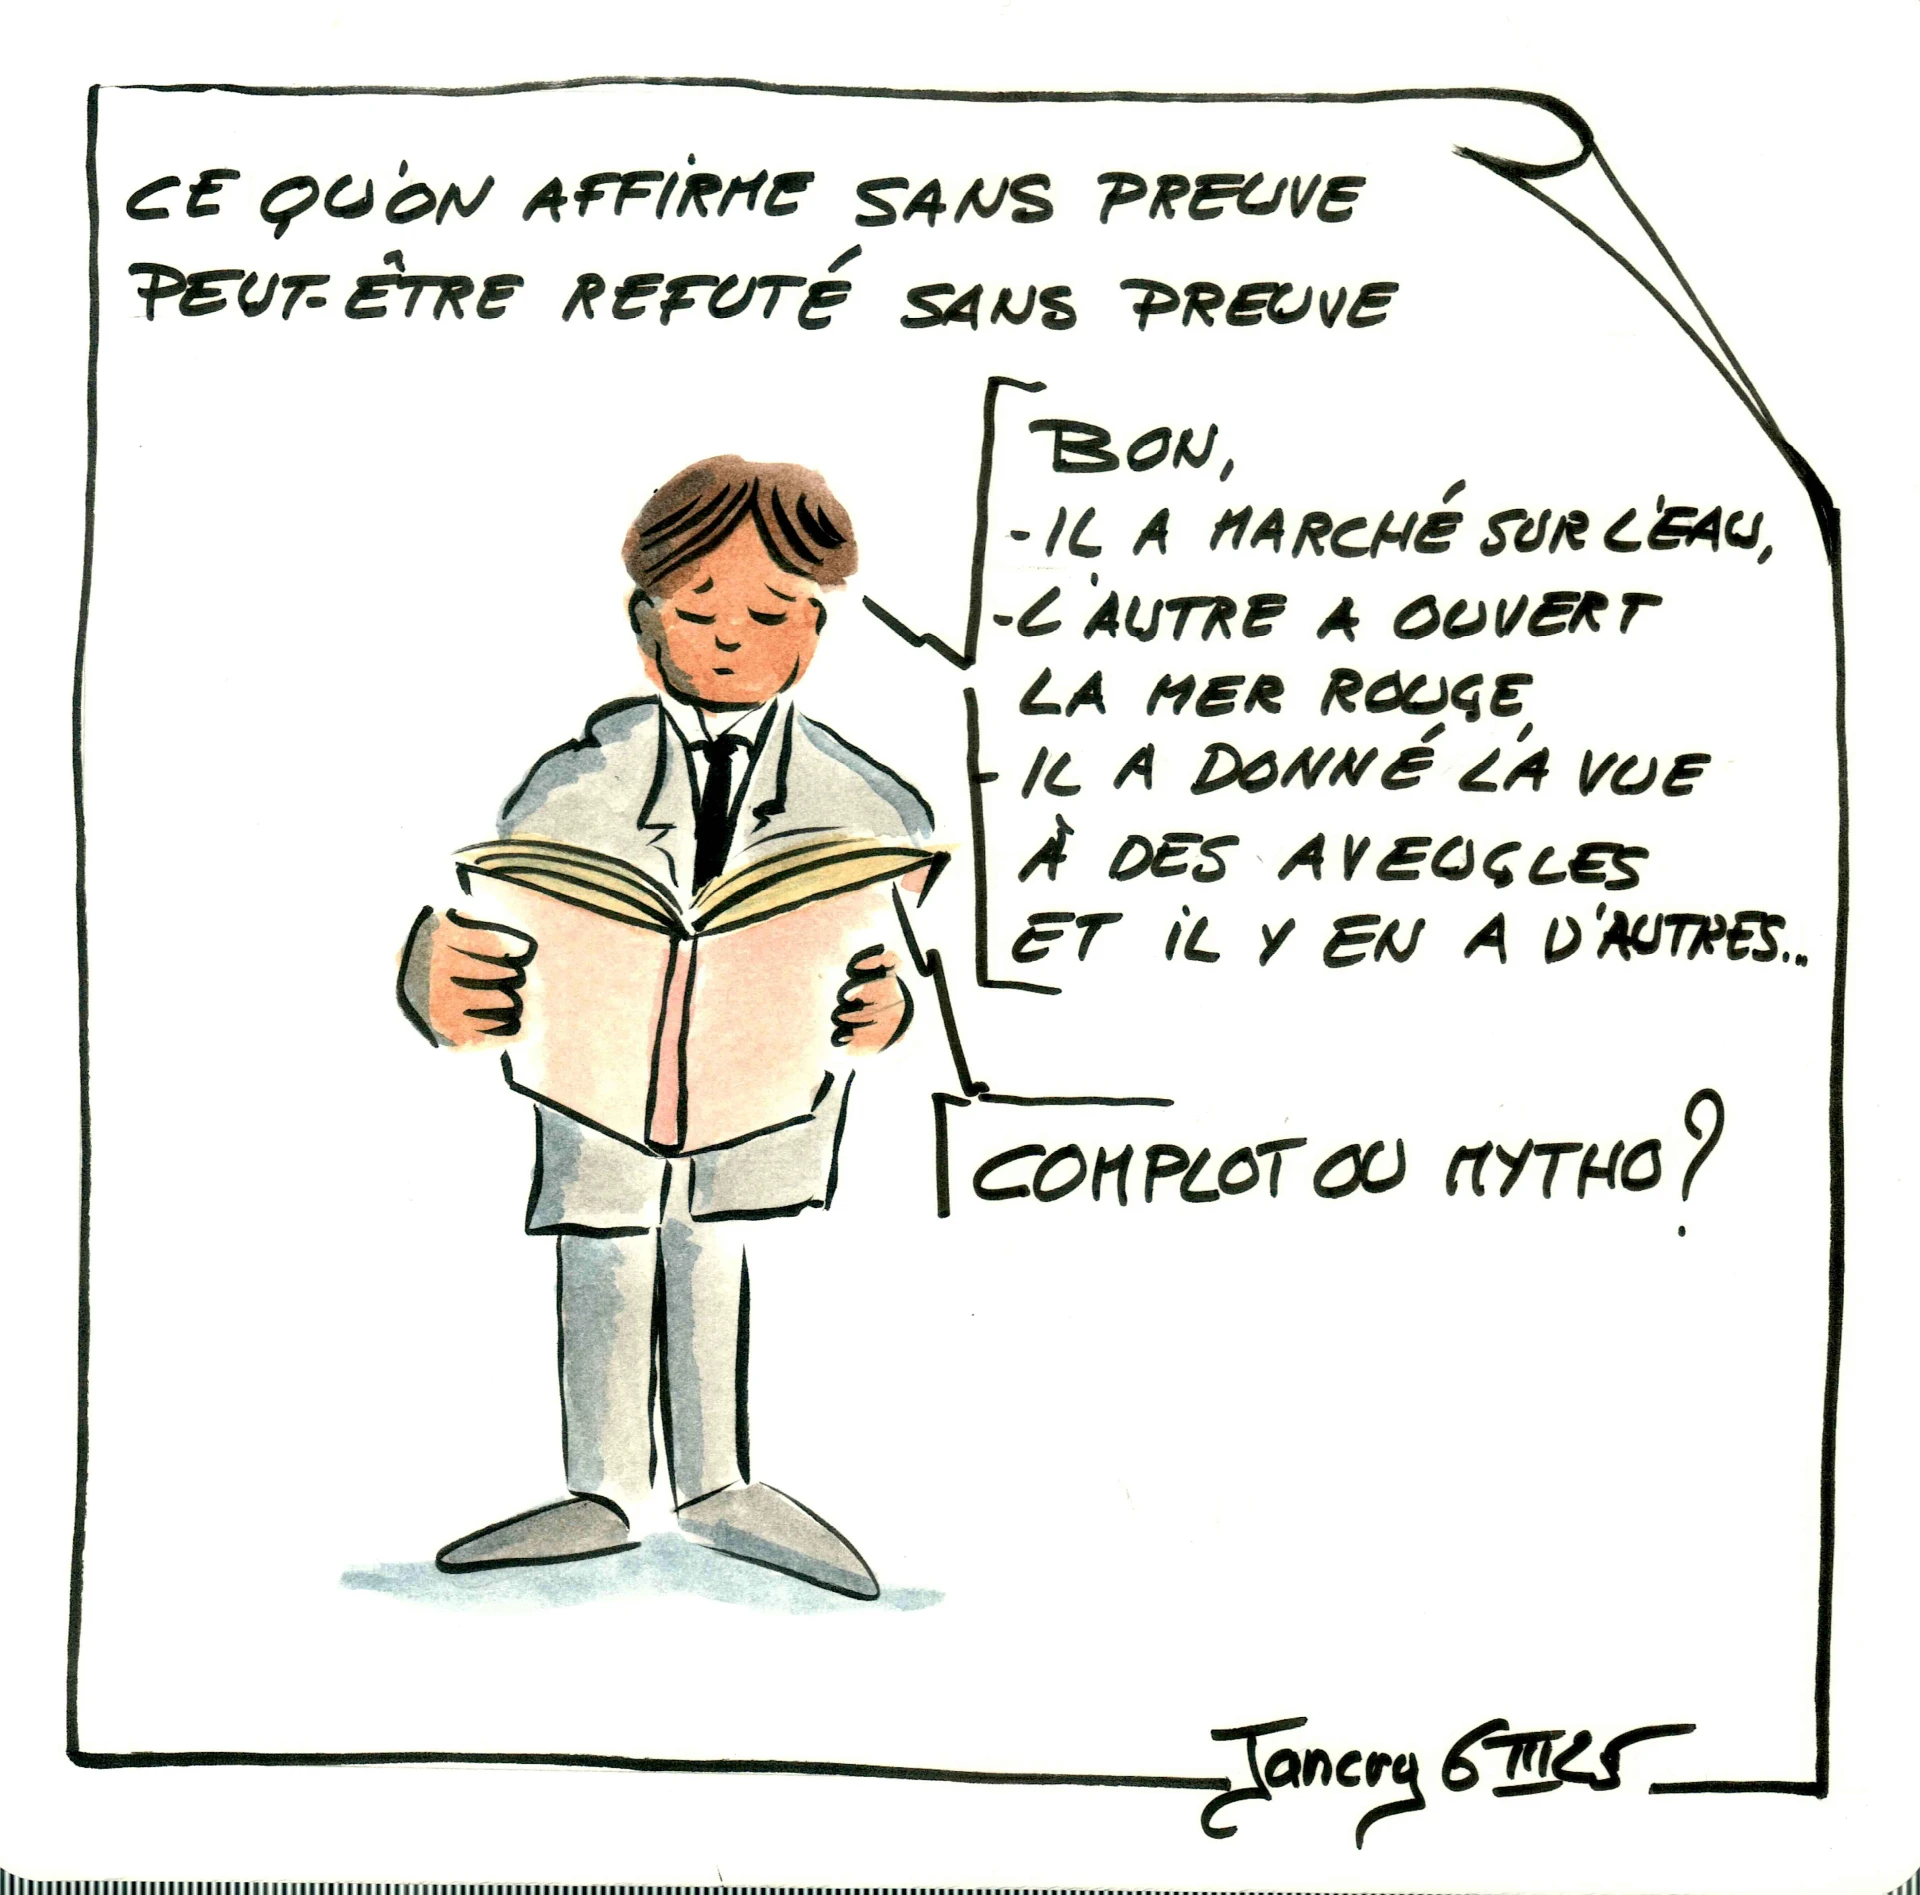 CE QU'ON AFFIRME SANS PREUVE
PEUT-ÊTRE REFUTÉ SANS PREUVE
BON,
-IL A MARCHÉ SUR L'EAU,
-L'AUTRE A OUVERT
LA MER ROUGE,
-IL A DONNÉ LA VUE
À DES AVEUGLES
ET IL Y EN A D'AUTRES...
COMPLOT OU MYTHO?
Jancry 6 III 25